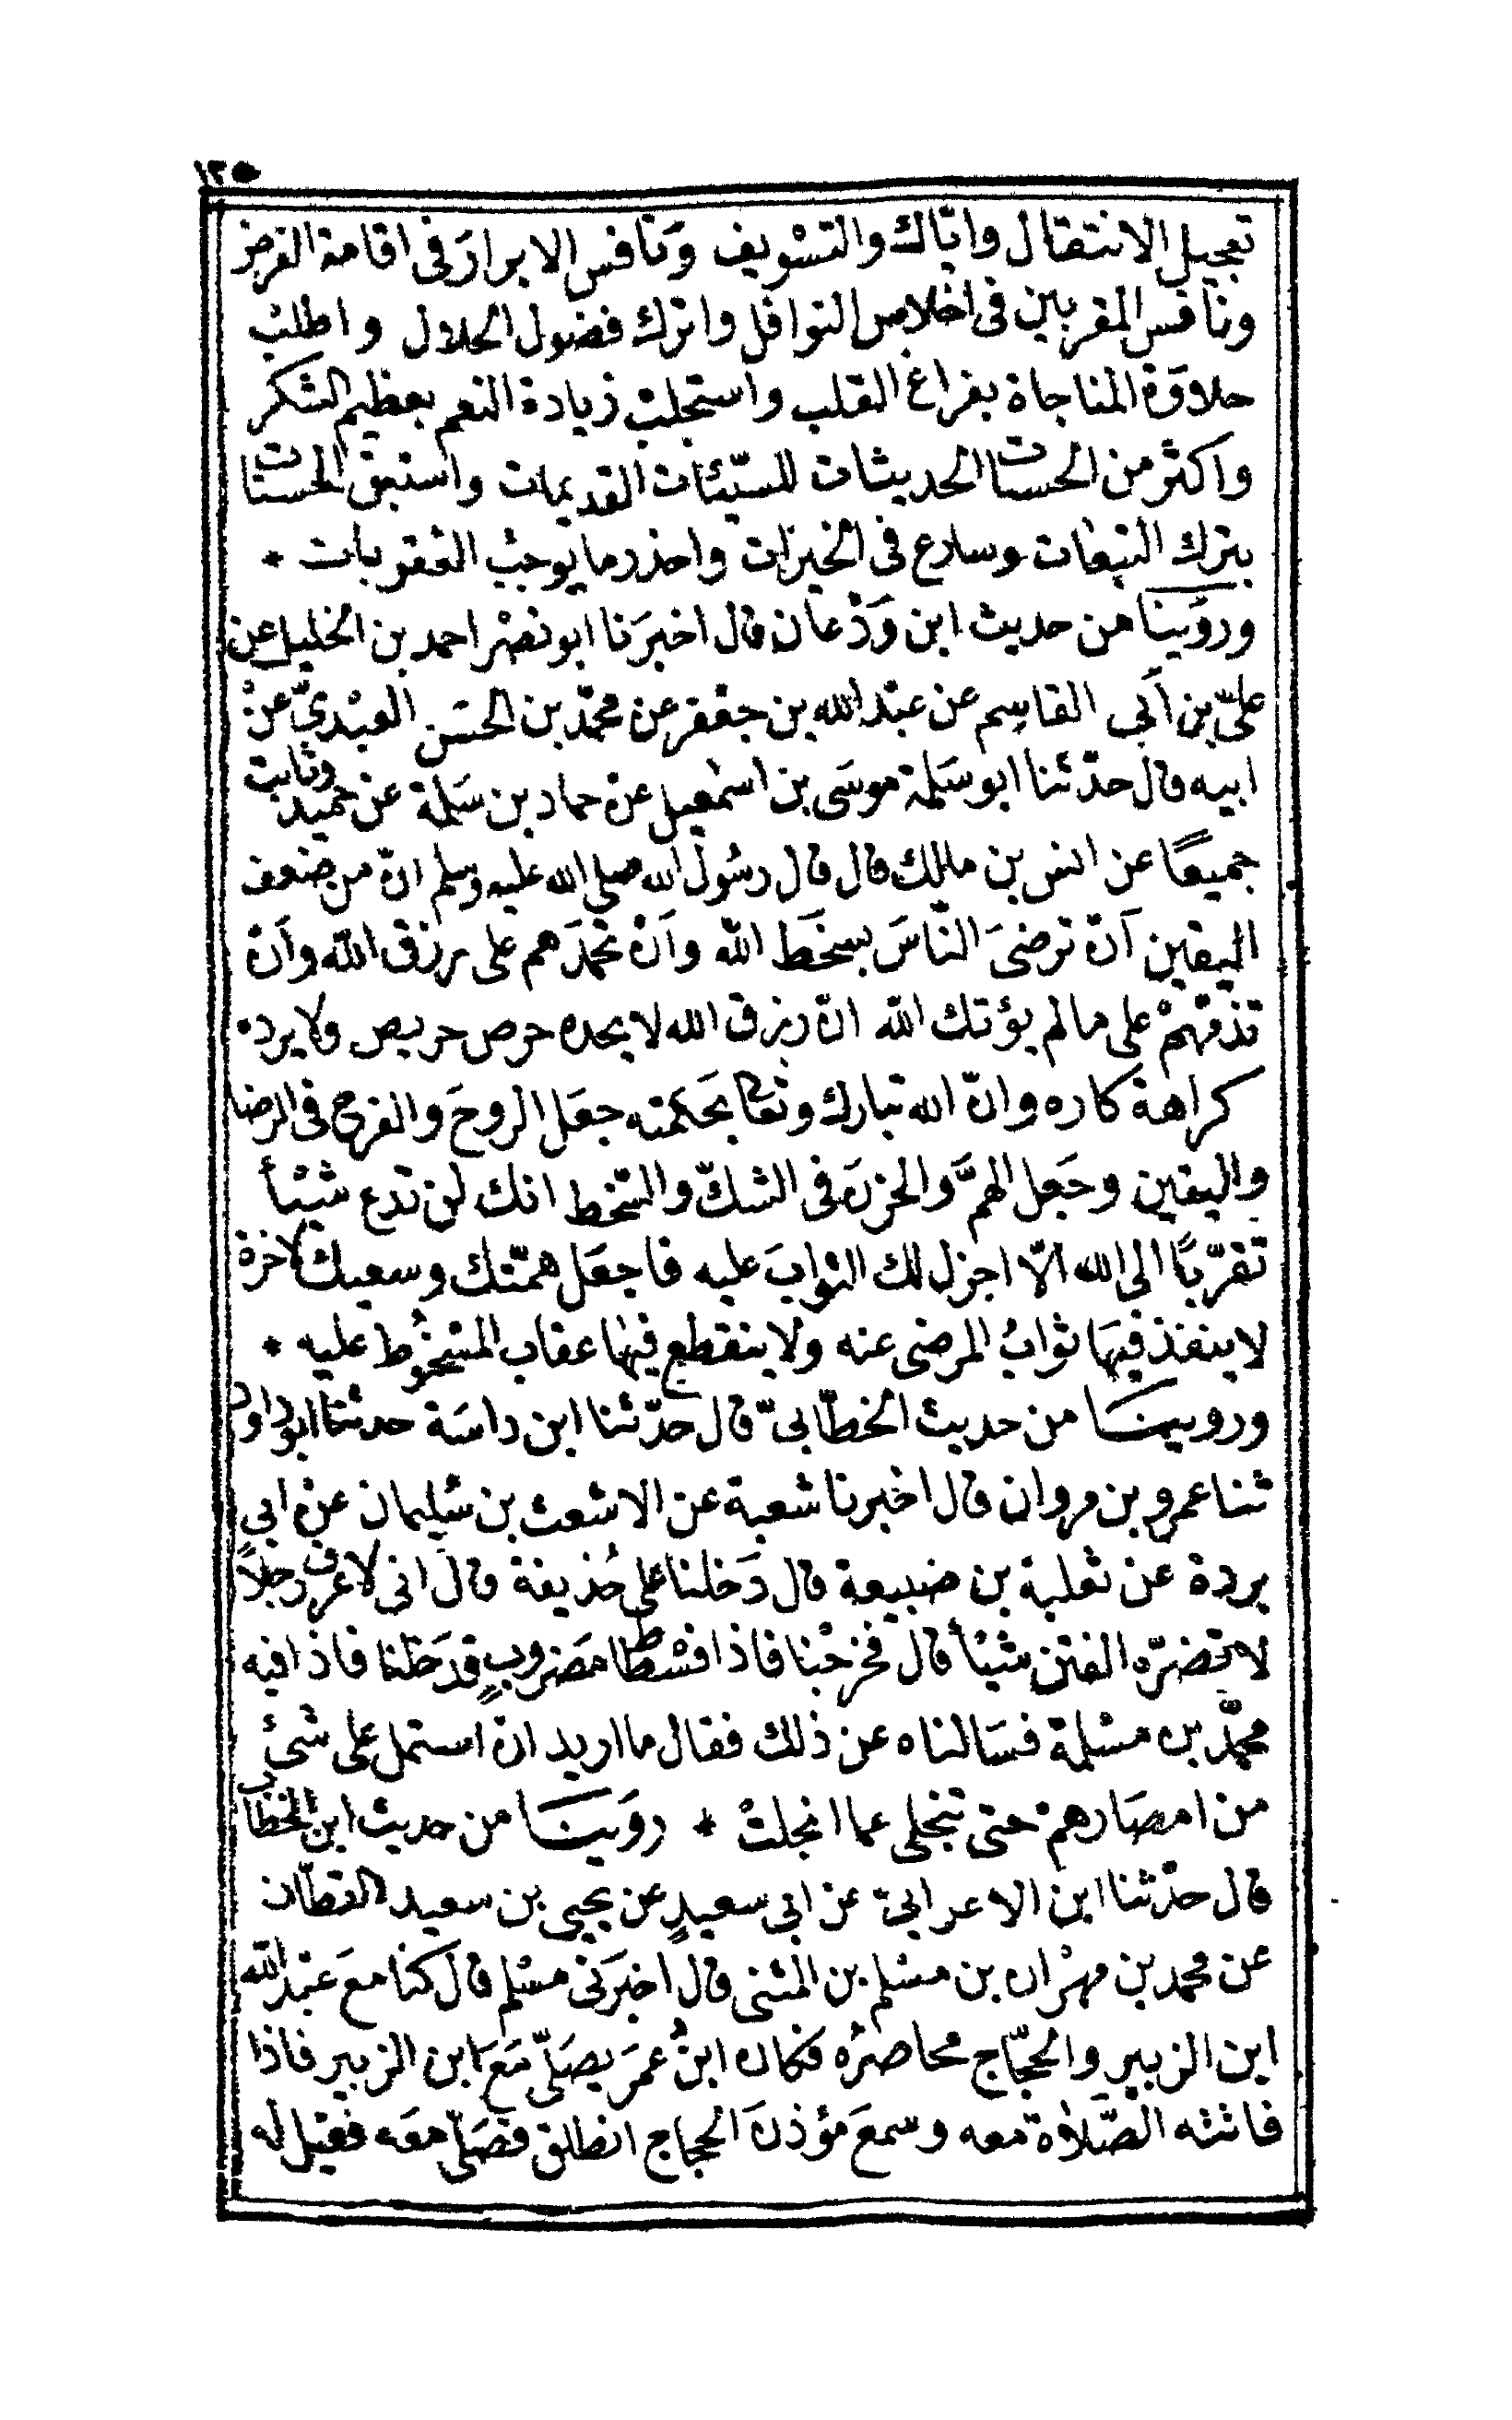 ١٣٥
تعجيل الانتقال واياك والتسْويف وَنافس الابرارَ فى اقامة الفرض
ونافس المقربين فى اخلاص النوافل واترك فضول الحلال واطلبْ
حلاوَة المناجاة بفراغ القلب واستجلبْ زيادة النعم بعظيم الشكر
واكثر من الحسنات الحديثات للسيّئات القديمات واستبق الحسنات
بترك التبعات وسارع فى الخيرات واحذر ما يوجبُ العقوبات *
وروَينا من حديث ابن وَدْعان قال اخبرَنا ابو نصْر احمد بن الخليل عن
علىّ بن اَبي القاسِم عن عبْد الله بن جعْفر عن محمّد بن الحسَن العبْديّ عنْ
ابيه قال حدّثنا ابو سَلمة موسَى بن اسمٰعيل عن حماد بن سَلمة عن حميد وثابت
جميعًا عن انس بن مالك قال قال رسُول الله صلى الله عليه وسلم انّ من ضعف
اليقين اَنْ ترضىَ الناسَ بسخَط الله واَنْ تحمدَهم على رزق الله واَنْ
تذمّهمْ على ما لم يؤتك الله انّ رزق الله لا يجده حرص حريص ولا يرده
كراهة كاره وانّ الله تبارك وتعا بحَكمته جعَل الروحَ والفرح فى الرضا
واليقين وجَعل الهمَّ والحزنَ فى الشكّ والسّخط انك لن تدع شيْئاً
تقرّباً الى الله الاّ اجزل لك الثوابَ عليه فاجعَل همّتك وسعيك لآخرة
لا ينفذ فيهَا ثوابُ المرضى عنه ولا ينقطع فيهَا عقاب المسْخُوط عليه *
وروينا من حديث الخطّابىّ قال حدّثنا ابن داسَة حدثنا ابو داود
ثنا عمرو بن مروان قال اخبرنا شعبة عن الاشعث بن سُليمان عن ابي
بردة عن ثعلبة بن ضبيعة قال دَخلنا على حُذيفة قال انى لاعرف رجلاً
لا تضرّه الفتن شيْئاً قال فخرجْنا فاذا فسْطاط مَضروبٍ فدَخلنا فاذا فيه
محمّد بن مسْلمة فسَالناه عن ذلك فقال ما اريد ان استمل على شئ
من امصَارهمْ حتى تنجلى عما انجلتْ * روَينا من حديث ابن الخطاب
قال حدّثنا ابن الاعرابىّ عن ابى سعيدٍ عن يحيى بن سعيد القطان
عن محمد بن مهْران بن مسْلم بن المثنى قال اخبرَنى مسْلم قال كنا معَ عبْد الله
ابن الزبير والحجّاج محاصرُه فكان ابنُ عمرَ يصَلّى مَعَ ابن الزبير فاذا
فاتته الصّلاة معه وسمعَ مؤذنَ الحجاج انطلق فصَلّى معَه فقيل له